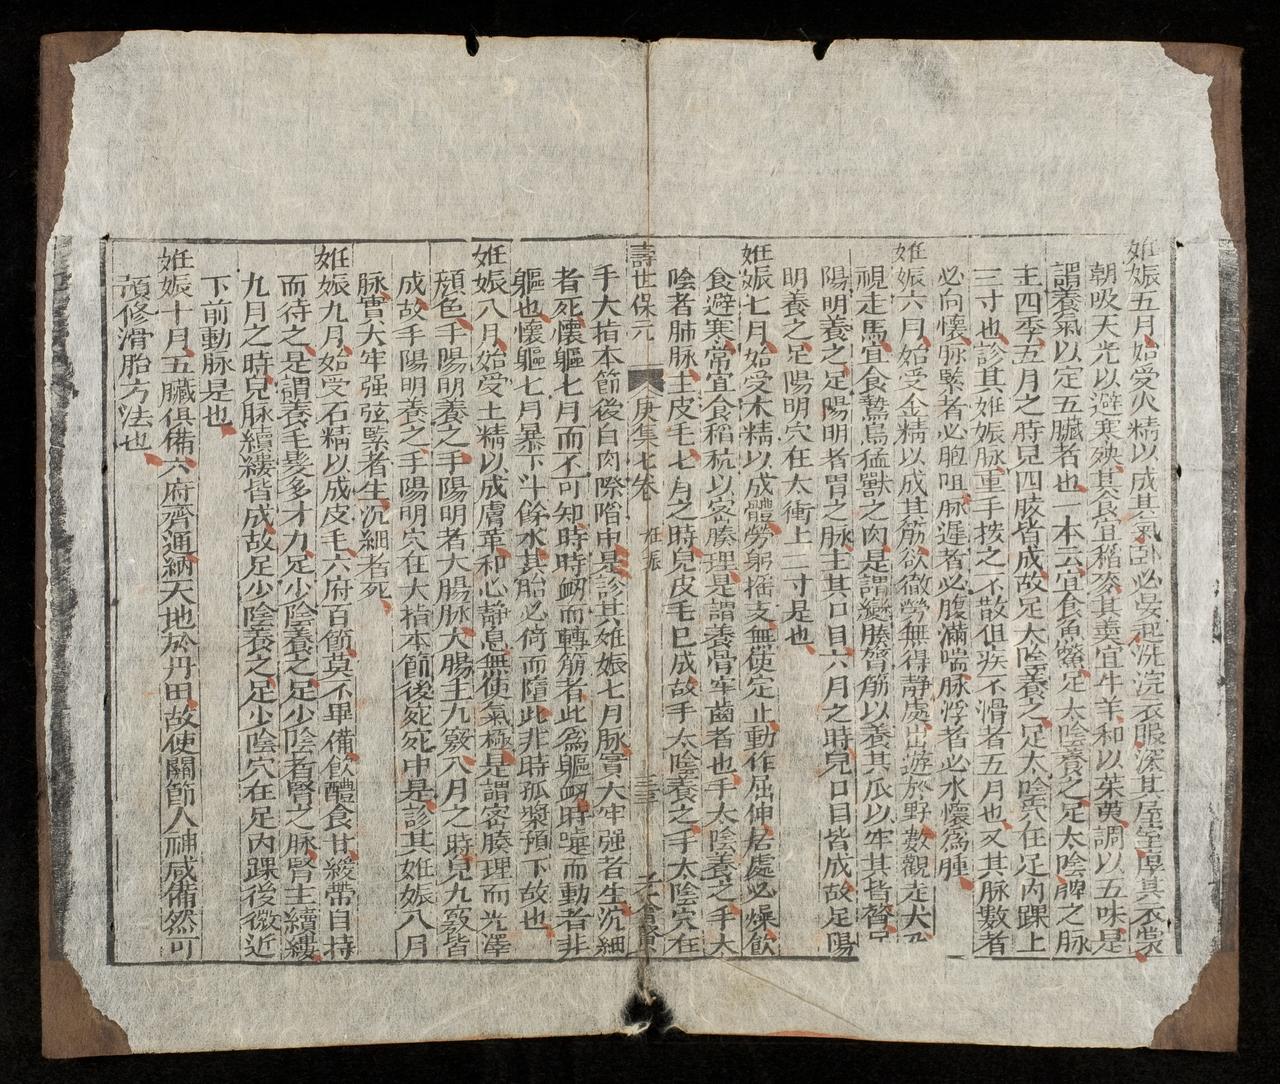 姙娠五月始受火精以成其氣臥必晏起洗浣衣服深其屋室厚其衣裳
朝吸天光以避寒殃其食宜稻麥其羹宜牛羊和以茱萸調以五味是
謂養氣以定五臟者也一本云宜食魚鱉足太陰養之足太陰脾之脉
主四季五月之時兒四肢皆成故足太陰養之足太陰穴在足內踝上
三寸也診其姙娠脉重手按之不散但疾不滑者五月也又其脉數者
必向懷脉緊者必胞阻脉遲者必腹滿喘脉浮者必水懷爲腫
姙娠六月始受金精以成其筋欲微勞無得靜處出遊於野數觀走犬及
視走馬宜食鷙鳥猛獸之肉是謂變腠膂筋以養其爪以牢其背膂足
陽明養之足陽明者胃之脉主其口目六月之時兒口目皆成故足陽
明養之足陽明穴在太衝上二寸是也
姙娠七月始受木精以成體勞躬搖支無使定止動作屈伸居處必燥飲
食避寒常宜食稻秔以密腠理是謂養骨牢齒者也手太陰養之手太
陰者肺脉主皮毛七月之時兒皮毛已成故手太陰養之手太陰穴在
壽世保元 庚集七卷 姙娠 三三
手大指本節後白肉際陷中是診其姙娠七月脉實大牢强者生沉細
者死懷軀七月而不可知時時衂而轉筋者此爲軀衂時嚏而動者非
軀也懷軀七月暴下斗餘水其胎必倚而墮此非時孤漿預下故也
姙娠八月始受土精以成膚革和心靜息無使氣極是謂密腠理而光澤
顔色手陽明養之手陽明者大腸脉大腸主九竅八月之時兒九竅皆
成故手陽明養之手陽明穴在大指本節後宛宛中是診其姙娠八月
脉實大牢强弦緊者生沉細者死
姙娠九月始受石精以成皮毛六府百節莫不畢備飲醴食甘緩帶自持
而待之是謂養毛髮多才力足少陰養之足少陰者腎之脉腎主續縷
九月之時兒脉續縷皆成故足少陰養之足少陰穴在足內踝後微近
下前動脉是也
姙娠十月五臟俱備六府齊通納天地於丹田故使關節人神咸備然可
預修滑胎方法也